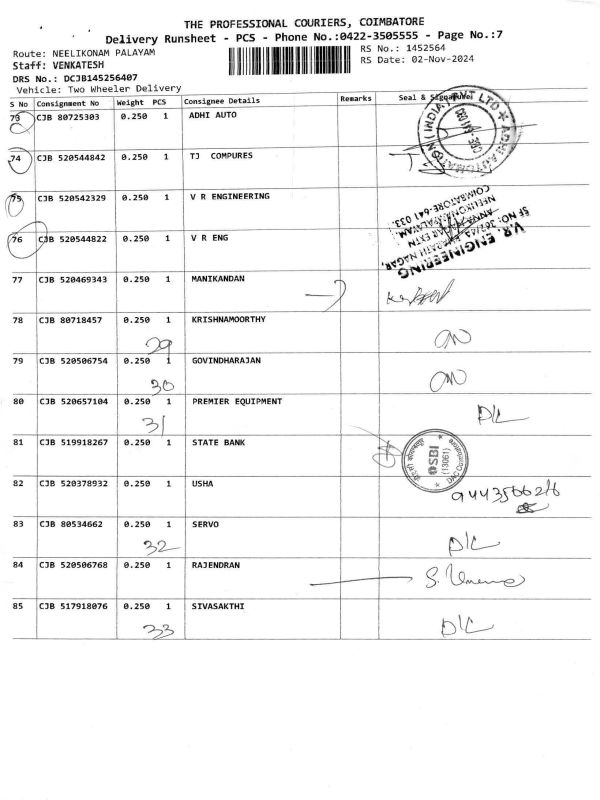 THE PROFESSIONAL COURIERS, COIMBATORE
Delivery Runsheet - PCS - Phone No.:0422-3505555 - Page No.:7
Route: NEELIKONAM PALAYAM
RS No.: 1452564
Staff: VENKATESH
RS Date: 02-Nov-2024
DRS No.: DCJB145256407
Vehicle: Two Wheeler Delivery
S No Consignment No Weight PCS Consignee Details Remarks Seal & Signature
73 CJB 80725303 0.250 1 ADHI AUTO
ADHI AUTOMATION (INDIA) PVT LTD
74 CJB 520544842 0.250 1 TJ COMPURES
75 CJB 520542329 0.250 1 V R ENGINEERING
76 CJB 520544822 0.250 1 V R ENG
V.R. ENGINEERING
NEELIKONAMPALAYAM,
COIMBATORE-641 033.
77 CJB 520469343 0.250 1 MANIKANDAN
78 CJB 80718457 0.250 1 KRISHNAMOORTHY
29
79 CJB 520506754 0.250 1 GOVINDHARAJAN
30
80 CJB 520657104 0.250 1 PREMIER EQUIPMENT
31 D/L
81 CJB 519918267 0.250 1 STATE BANK
SBI
(13061)
82 CJB 520378932 0.250 1 USHA
83 CJB 80534662 0.250 1 SERVO
32 D/L
84 CJB 520506768 0.250 1 RAJENDRAN
85 CJB 517918076 0.250 1 SIVASAKTHI
33 D/L